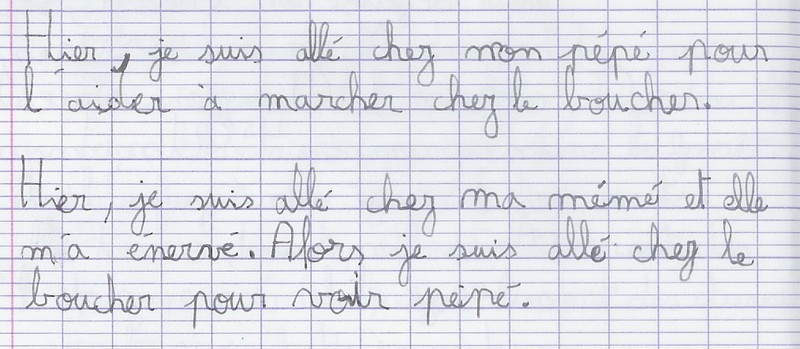 Hier, je suis allé chez mon pépé pour
l'aider à marcher chez le boucher.
Hier, je suis allé chez ma mémé et elle
m'a énervé. Alors je suis allé chez le
boucher pour voir pépé.